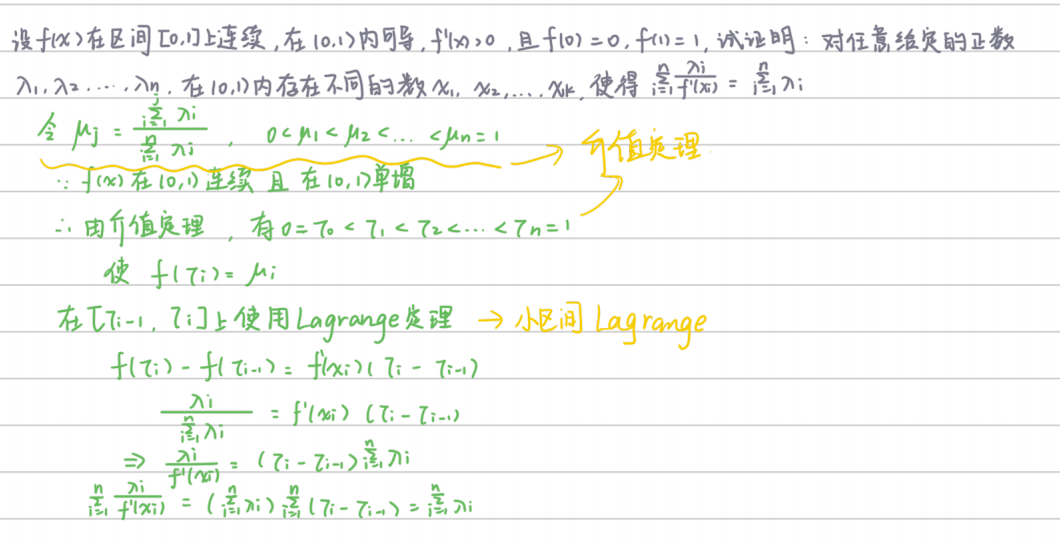 设f(x)在区间[0,1]上连续,在(0,1)内可导,f'(x)>0,且f(0)=0,f(1)=1,试证明:对任意给定的正数
λ₁,λ₂,...,λn,在(0,1)内存在不同的数x₁,x₂,...,xk,使得 \sum_{i=1}^{n} \frac{λi}{f'(xi)} = \sum_{i=1}^{n} λi
令 μj = \frac{\sum_{i=1}^{j} λi}{\sum_{i=1}^{n} λi}, 0<μ₁<μ₂<...<μn=1 → 介值定理
∵ f(x)在(0,1)连续 且 在(0,1)单增
∴ 由介值定理,有0=τ₀<τ₁<τ₂<...<τn=1
使 f(τi)=μi
在[τi-1,τi]上使用Lagrange定理 → 小区间Lagrange
f(τi)-f(τi-1)=f'(xi)(τi-τi-1)
\frac{λi}{\sum_{i=1}^{n} λi} = f'(xi)(τi-τi-1)
⇒ \frac{λi}{f'(xi)} = (τi-τi-1)\sum_{i=1}^{n} λi
\sum_{i=1}^{n} \frac{λi}{f'(xi)} = (\sum_{i=1}^{n} λi)\sum_{i=1}^{n}(τi-τi-1) = \sum_{i=1}^{n} λi